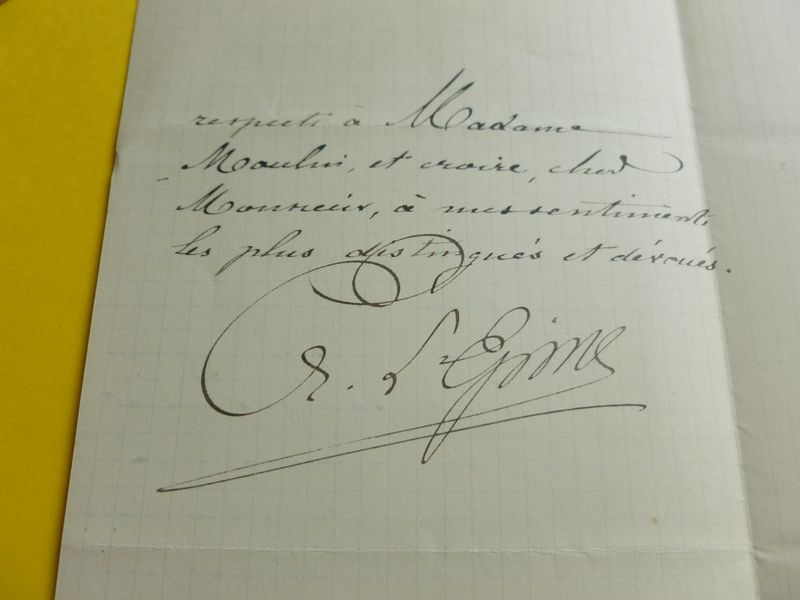 respects à Madame
Moulin, et croire, cher
Monsieur, à mes sentiments
les plus distingués et dévoués.
L'Epine